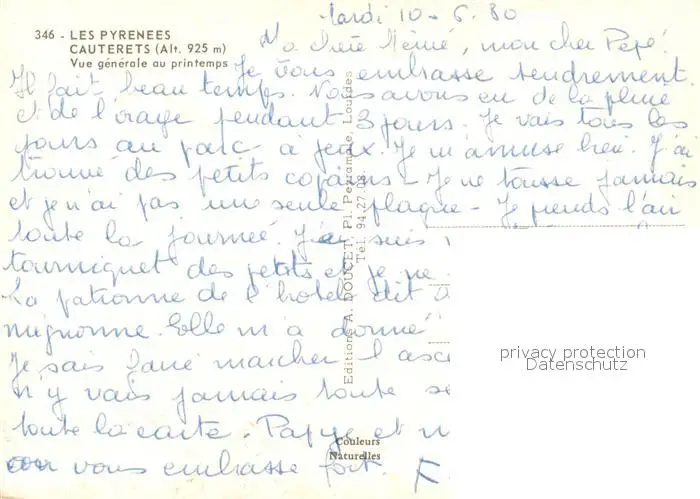 346 - LES PYRENEES
CAUTERETS (Alt. 925 m)
Vue générale au printemps
Mardi 10 - 6. 80
Ma chère Mémé, mon cher Pépé.
Je vous embrasse tendrement.
Il fait beau temps. Nous avons eu de la pluie
et de l'orage pendant 3 jours. Je vais tous les
jours au parc à jeux. Je m'amuse bien. J'ai
trouvé des petits copains - Je ne tousse jamais
et je n'ai pas une seule plaque - Je prends l'air
toute la journée. suis
tourniquet des petits et je ne
La patronne de l'hotel dit
mignonne. Elle m'a donné
Je sais faire marcher l'asc
n'y vais jamais toute se
toute la carte. Papye et
vous embrasse fort.
Editions A. DOUCET, Pl. Peyramale, Lourdes
Tél. 94.27.08
Couleurs
Naturelles
privacy protection
Datenschutz